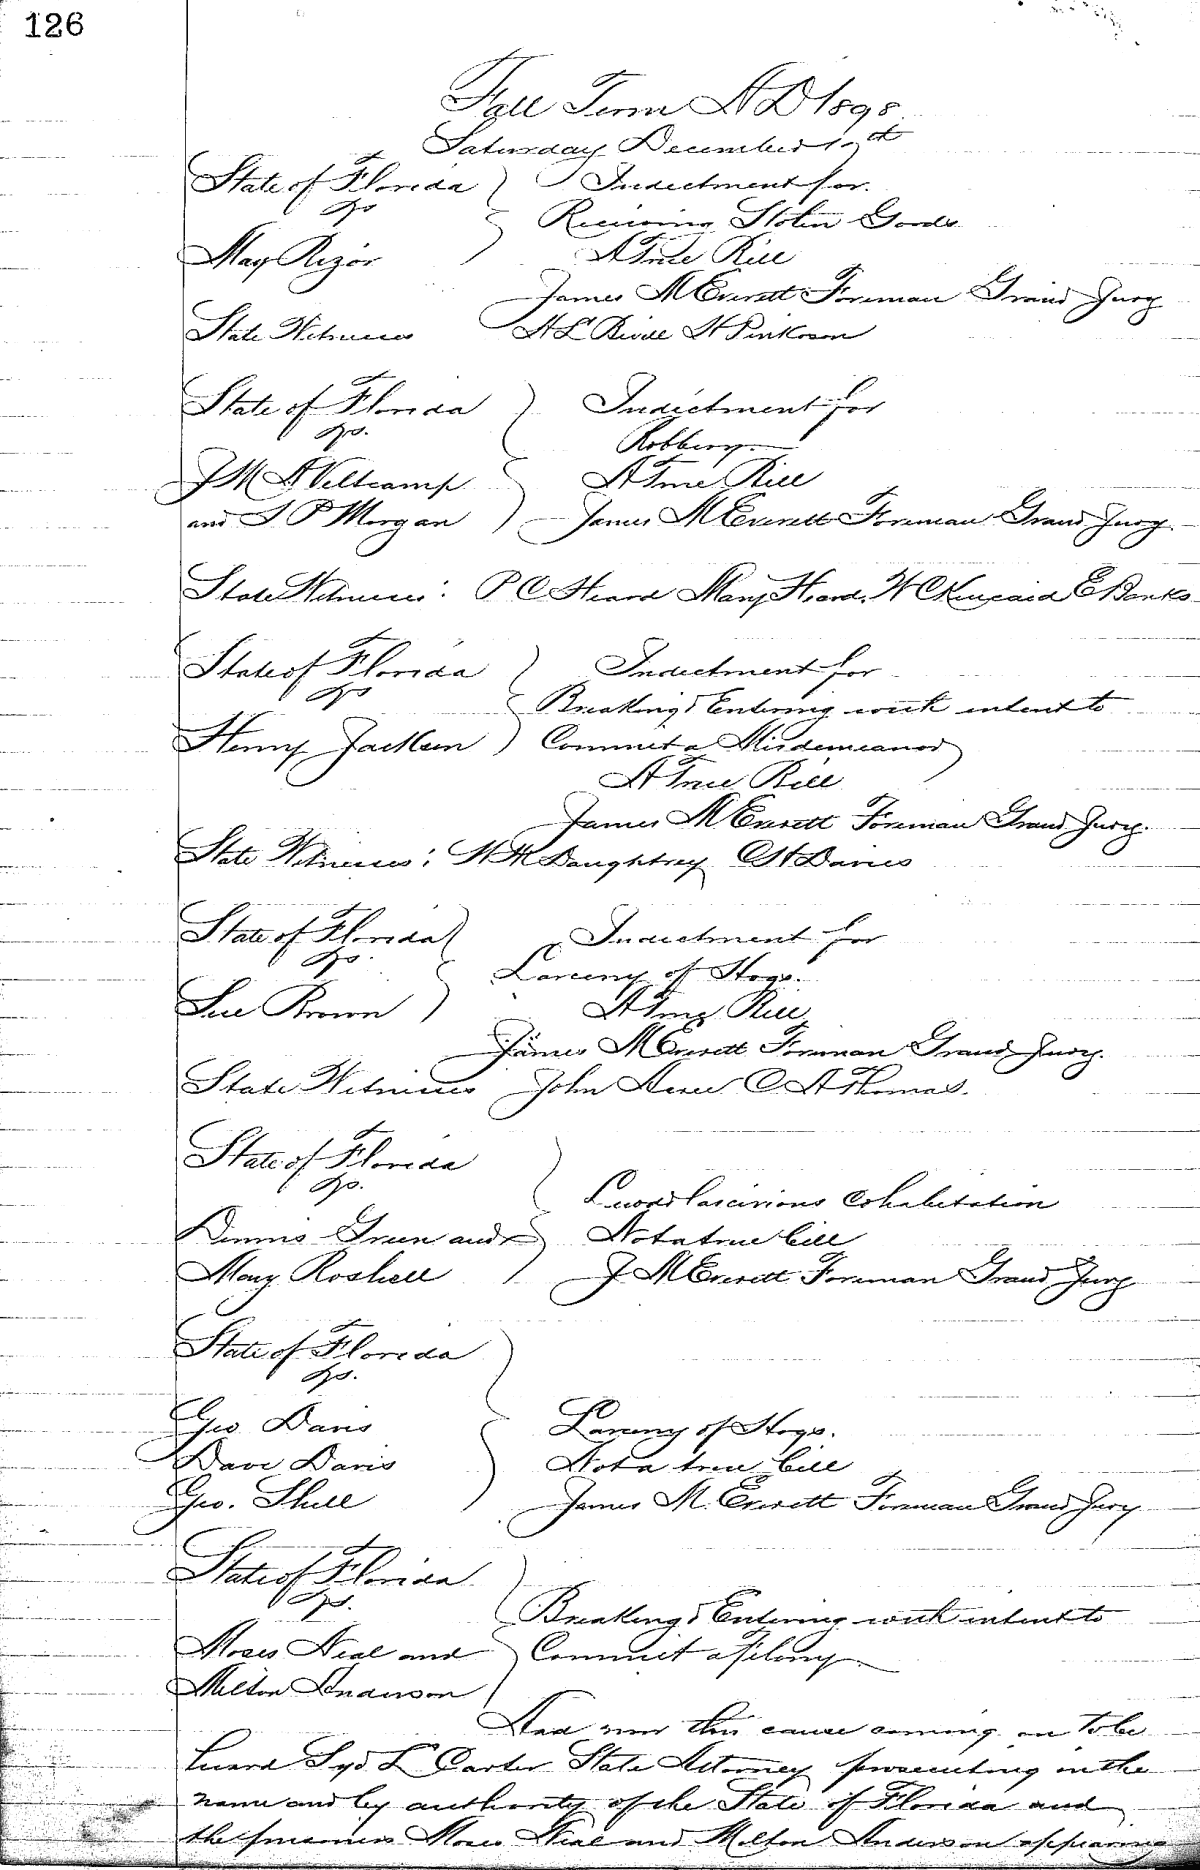 126
Fall Term A D 1898
Saturday December 10th
State of Florida Indictment for
vs Receiving Stolen Goods
May Rizor A True Bill
James M Everett Foreman Grand Jury
State Witnesses A L Pinkoson
State of Florida Indictment for
vs. Robbery
J M A Veltcamp A True Bill
and J P Morgan James M Everett Foreman Grand Jury.
State Witnesses: P C Heard Mary Heard. W C Kincaid E Banks
State of Florida Indictment for
vs Breaking & Entering with intent to
Henry Jackson Commit a Misdemeanor
A True Bill
James M Everett Foreman Grand Jury.
State Witnesses: Daughtrey C H Davies
State of Florida Indictment for
vs. Larceny of Hogs.
Sue Brown A True Bill
James M Everett Foreman Grand Jury.
State Witnesses John C A Thomas.
State of Florida
vs. Lewd lascivious Cohabitation
Dennis Green and Not a true bill
Mary Roshell J M Everett Foreman Grand Jury
State of Florida
vs.
Geo Davis Larceny of Hogs.
Dave Davis Not a true bill
Geo. Shell James M. Everett Foreman Grand Jury
State of Florida
vs. Breaking & Entering with intent to
Moses Neal and Commit a felony
Milton Anderson
And now this cause coming on to be
heard Syd L Carter State Attorney prosecuting in the
name and by authority of the State of Florida and
the prisoners Moses Neal and Milton Anderson appearing